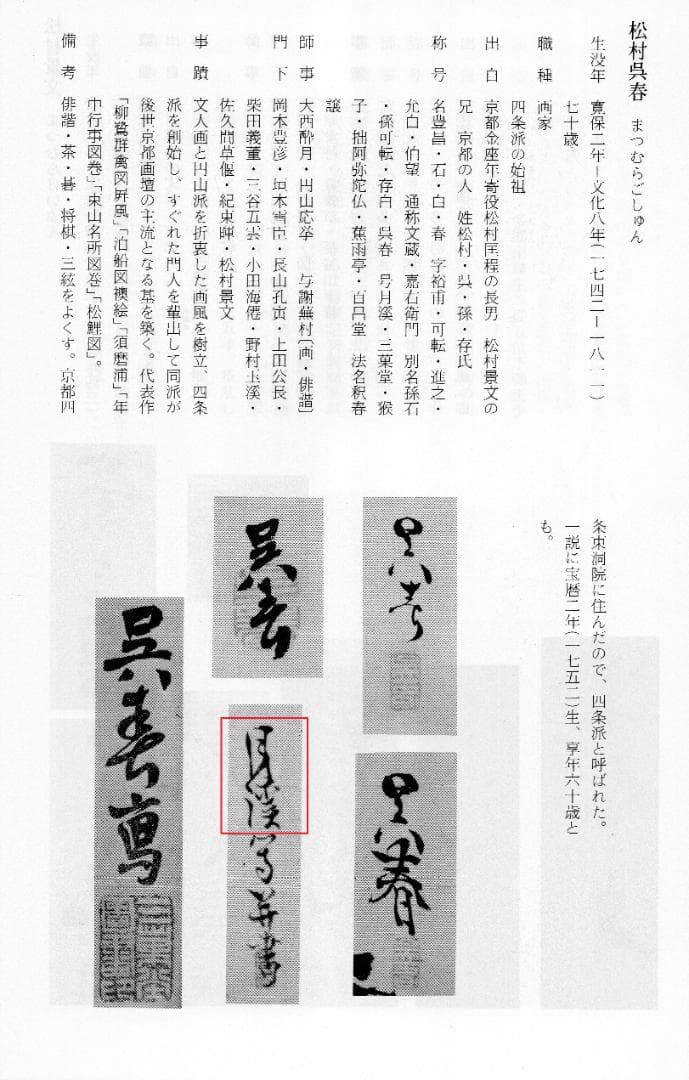 松村呉春　まつむらごしゅん
生没年　寛保二年―文化八年(一七四二―一八一一)
七十歳
職種　画家
四条派の始祖
出自　京都金座年寄役松村匡程の長男　松村景文の
兄　京都の人　姓松村・呉・孫・存氏
称号　名豊昌・石・白・春　字裕甫・可転・進之・
允白・伯望　通称文蔵・嘉右衛門　別名孫石
・孫可転・存白・呉春　号月溪・三菓堂・猴
子・拙阿弥陀仏・蕉雨亭・百昌堂　法名釈春
譲
師事　大西酔月・円山応挙　与謝蕪村〔画・俳諧〕
門下　岡本豊彦・垣本雪臣・長山孔寅・上田公長・
柴田義董・三谷五雲・小田海僊・野村玉溪・
佐久間草偃・紀東暉・松村景文
事蹟　文人画と円山派を折衷した画風を樹立、四条
派を創始し、すぐれた門人を輩出して同派が
後世京都画壇の主流となる基を築く。代表作
「柳鷺群禽図屛風」「泊船図襖絵」「須磨浦」「年
中行事図巻」「東山名所図巻」「松鯉図」。
備考　俳諧・茶・碁・将棋・三絃をよくす。京都四
条東洞院に住んだので、四条派と呼ばれた。
一説に宝暦二年(一七五二)生、享年六十歳と
も。
呉春
呉春
呉春
月溪写并書
呉春写